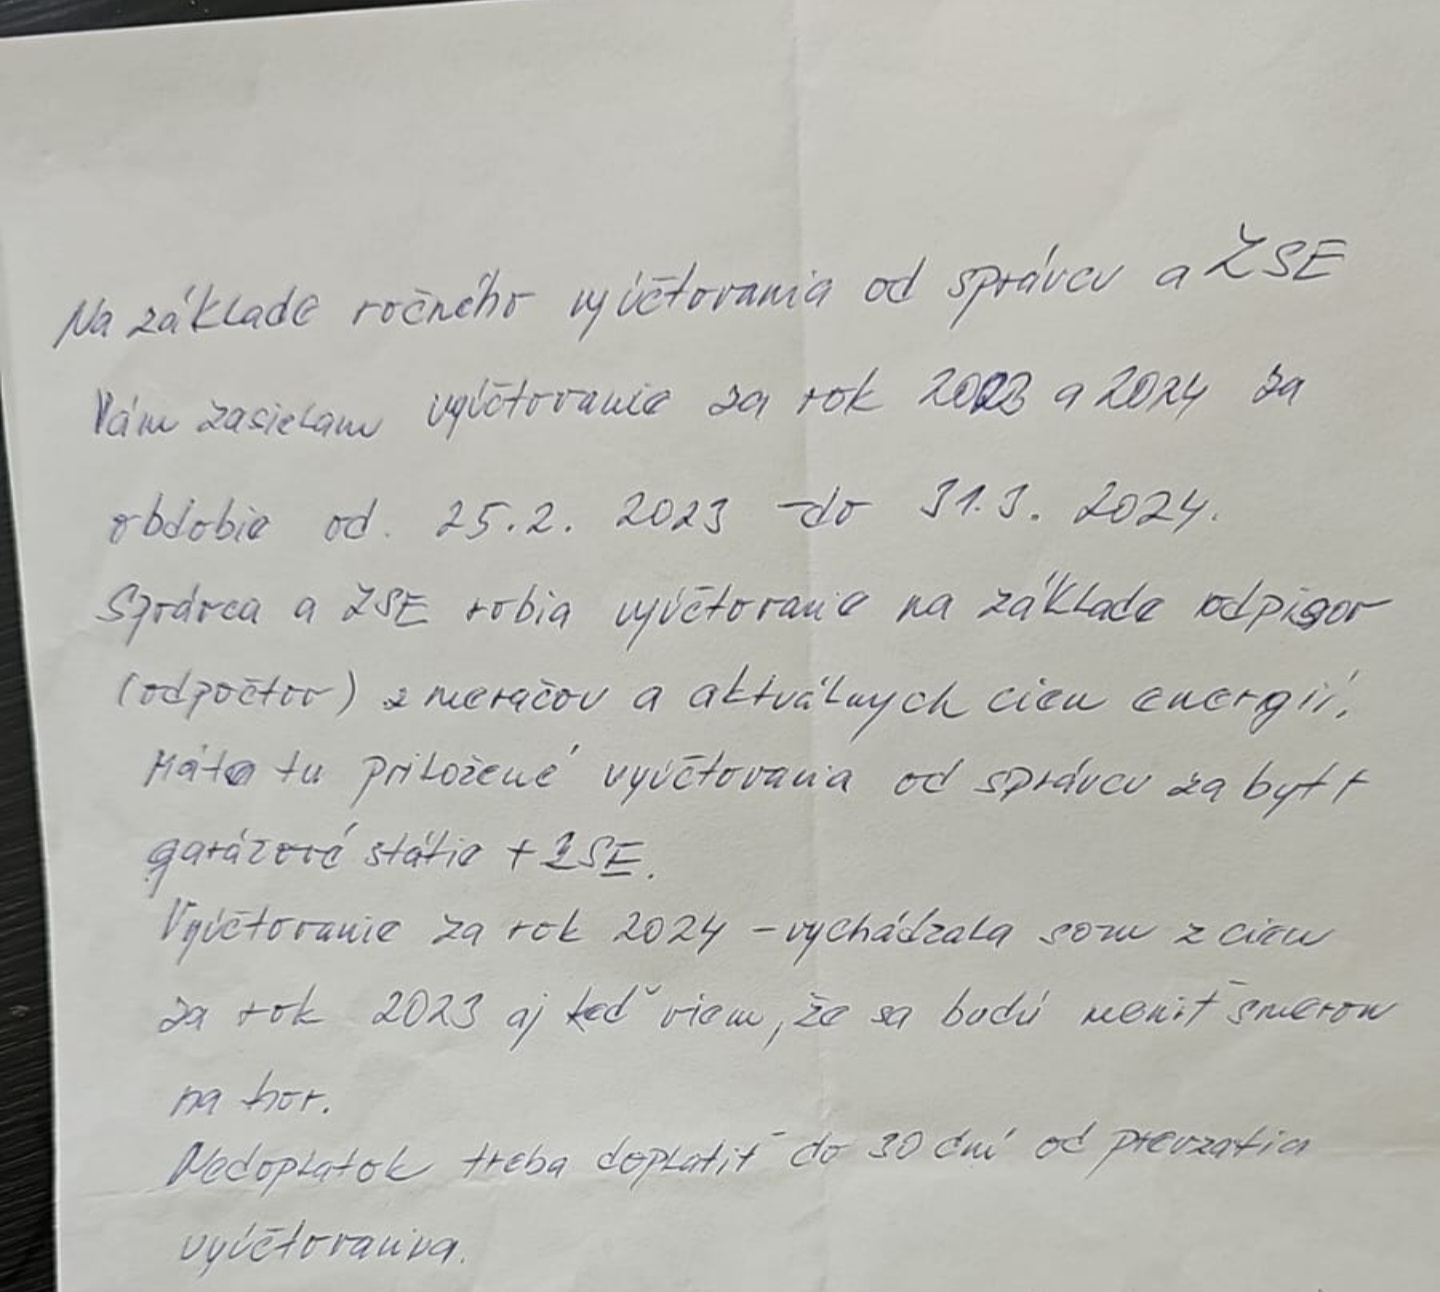 Na základe ročného vyúčtovania od správcu a ZSE
Vám zasielam vyúčtovanie za rok 2023 a 2024 za
obdobie od. 25.2. 2023 do 31.3. 2024.
Správca a ZSE robia vyúčtovanie na základe odpisov
(odpočtov) z meračov a aktuálnych cien energií.
Máte tu priložené vyúčtovania od správcu za byt +
garážové státie + ZSE.
Vyúčtovanie za rok 2024 - vychádzala som z cien
za rok 2023 aj keď viem, že sa budú meniť smerom
na hor.
Nedoplatok treba doplatiť do 30 dní od prevzatia
vyúčtovania.